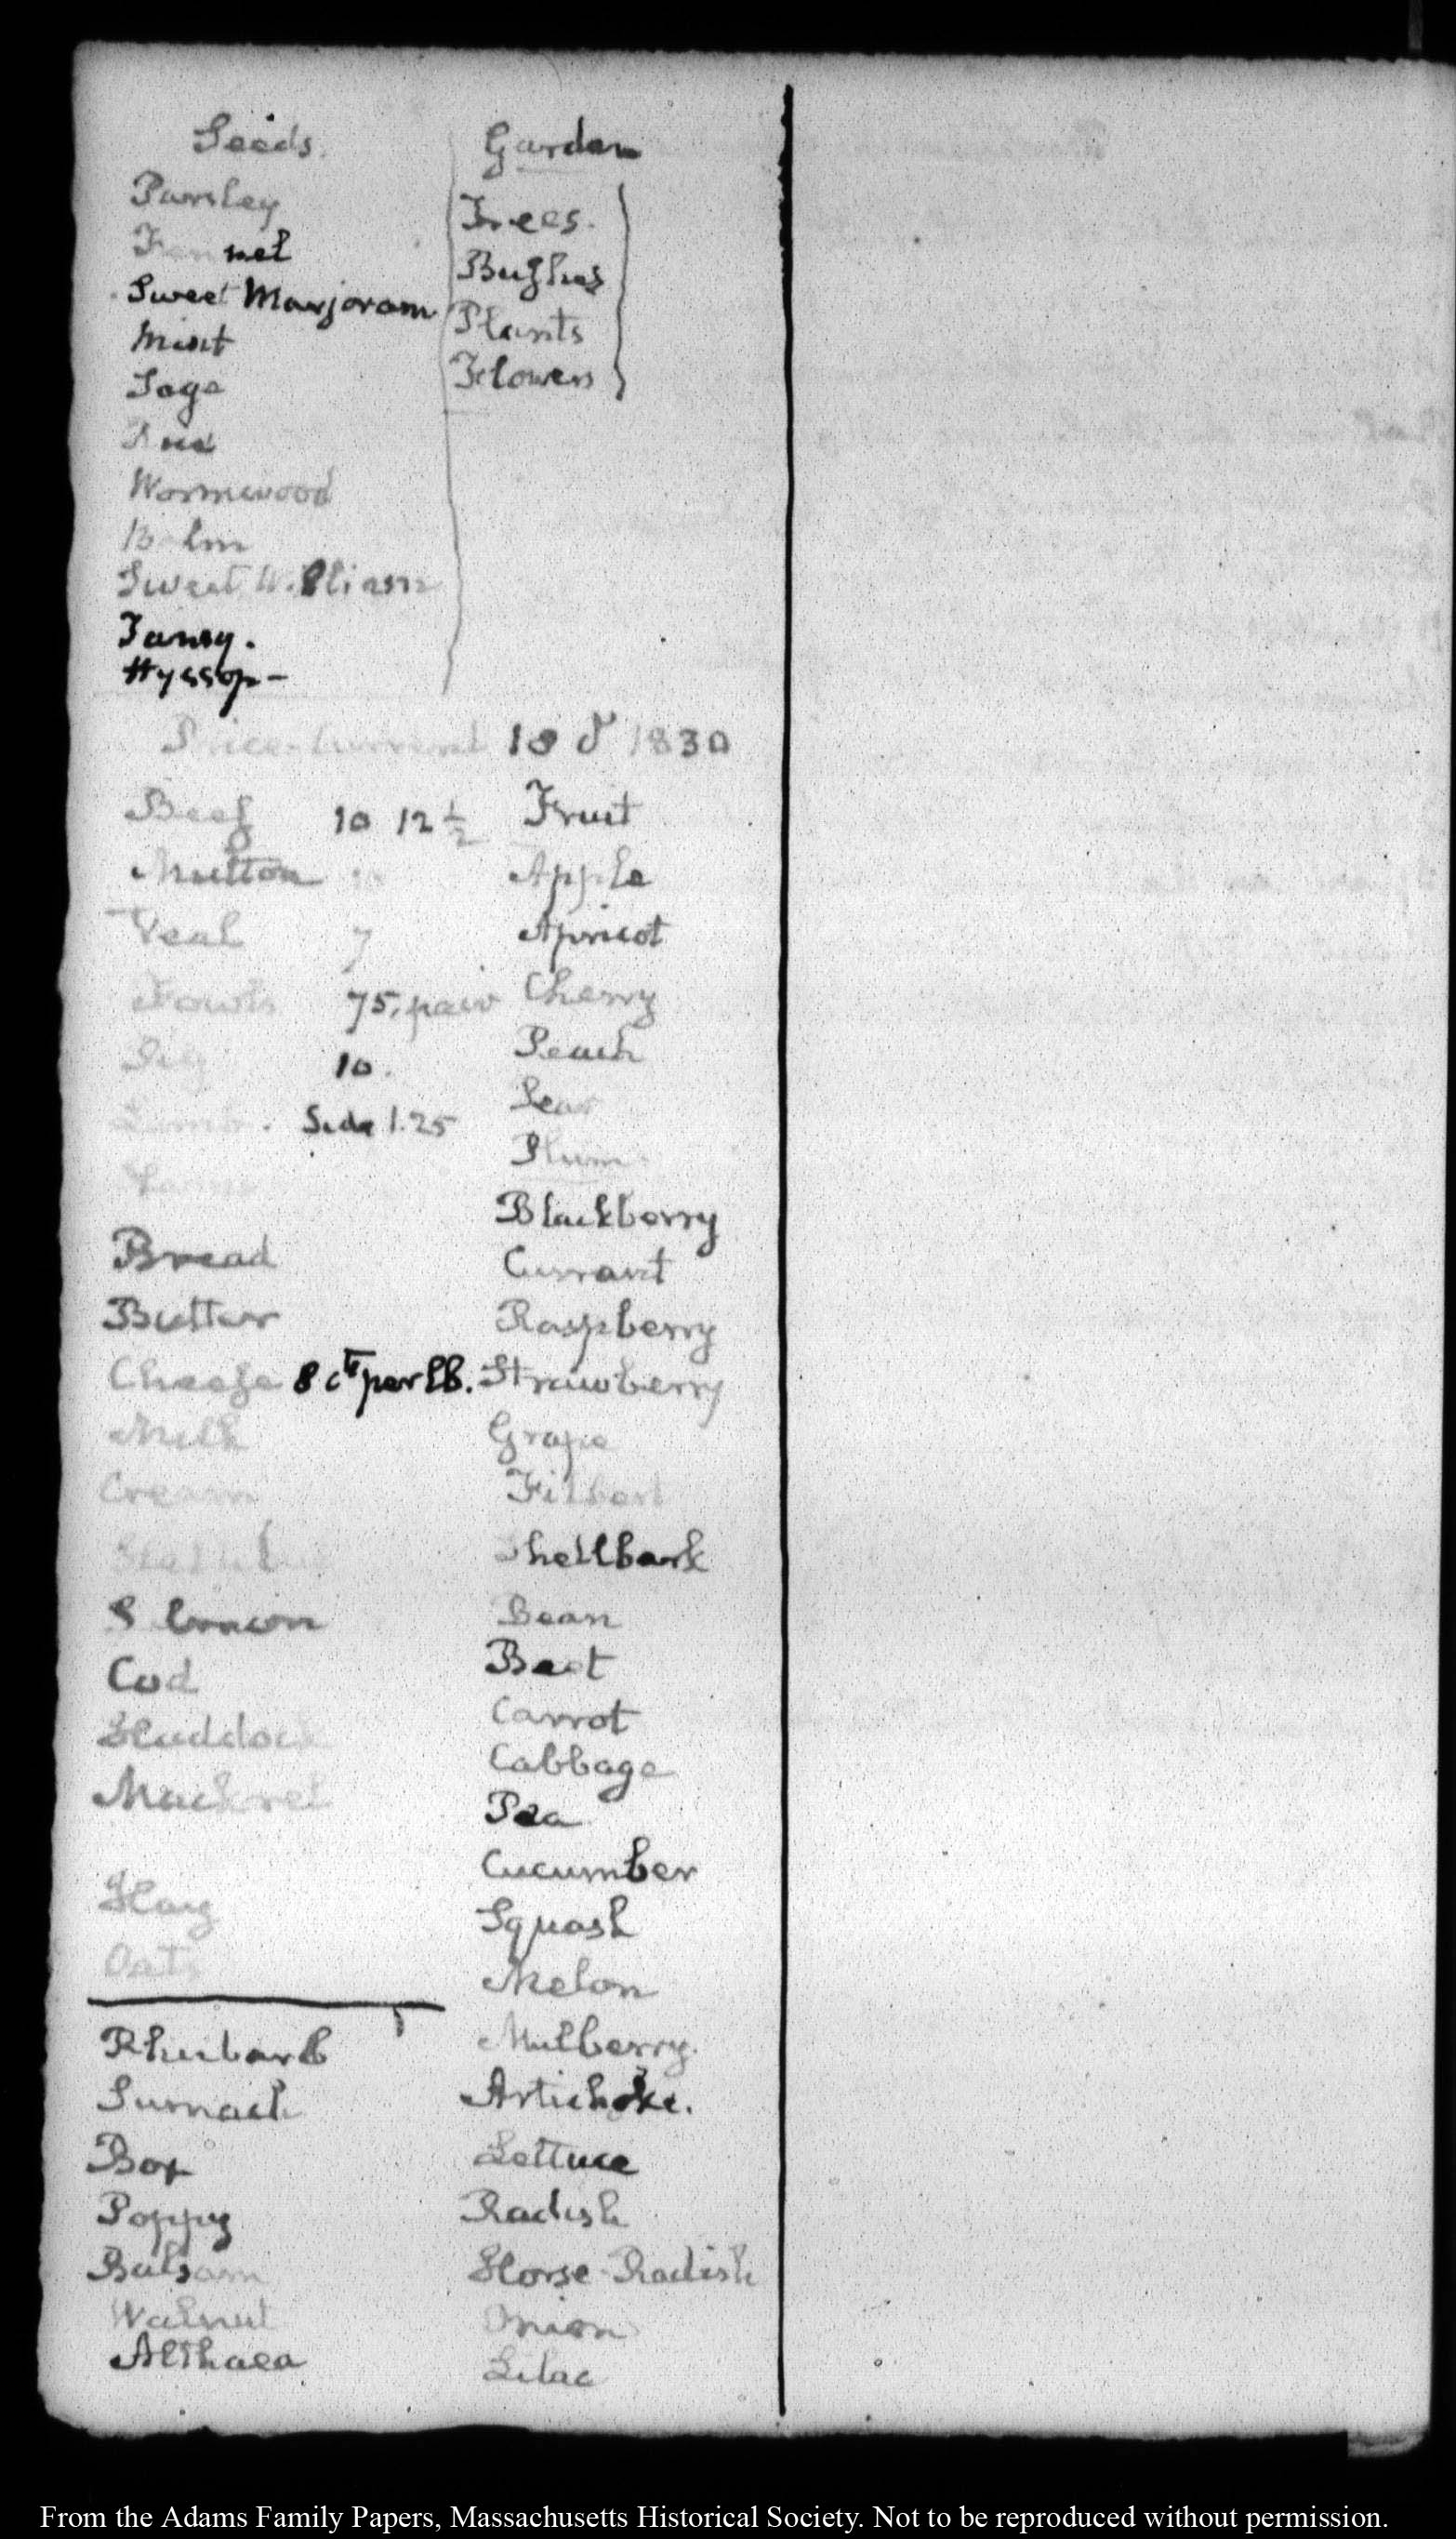 Seeds.
Parsley
Fennel
Sweet Marjoram
Mint
Sage
Rue
Wormwood
Balm
Sweet William
Tansy.
Hyssop-
Garden
Trees.
Bushes
Plants
Flowers
Price-Current 18 1830
Beef 10 12½
Mutton 10
Veal 7
Fowls 75. pair
Pig 10.
Lamb. Side 1.25
Bread
Butter
Cheese 8 cts per lb.
Milk
Cream
Halibut
Salmon
Cod
Haddock
Mackrel
Hay
Oats
Rhubarb
Sumach
Box
Poppy
Balsam
Walnut
Althaea
Fruit
Apple
Apricot
Cherry
Peach
Pear
Plum
Blackberry
Currant
Raspberry
Strawberry
Grape
Filbert
Shellbark
Bean
Beet
Carrot
Cabbage
Pea
Cucumber
Squash
Melon
Mulberry.
Artichoke.
Lettuce
Radish
Horse-Radish
Onion
Lilac
From the Adams Family Papers, Massachusetts Historical Society. Not to be reproduced without permission.